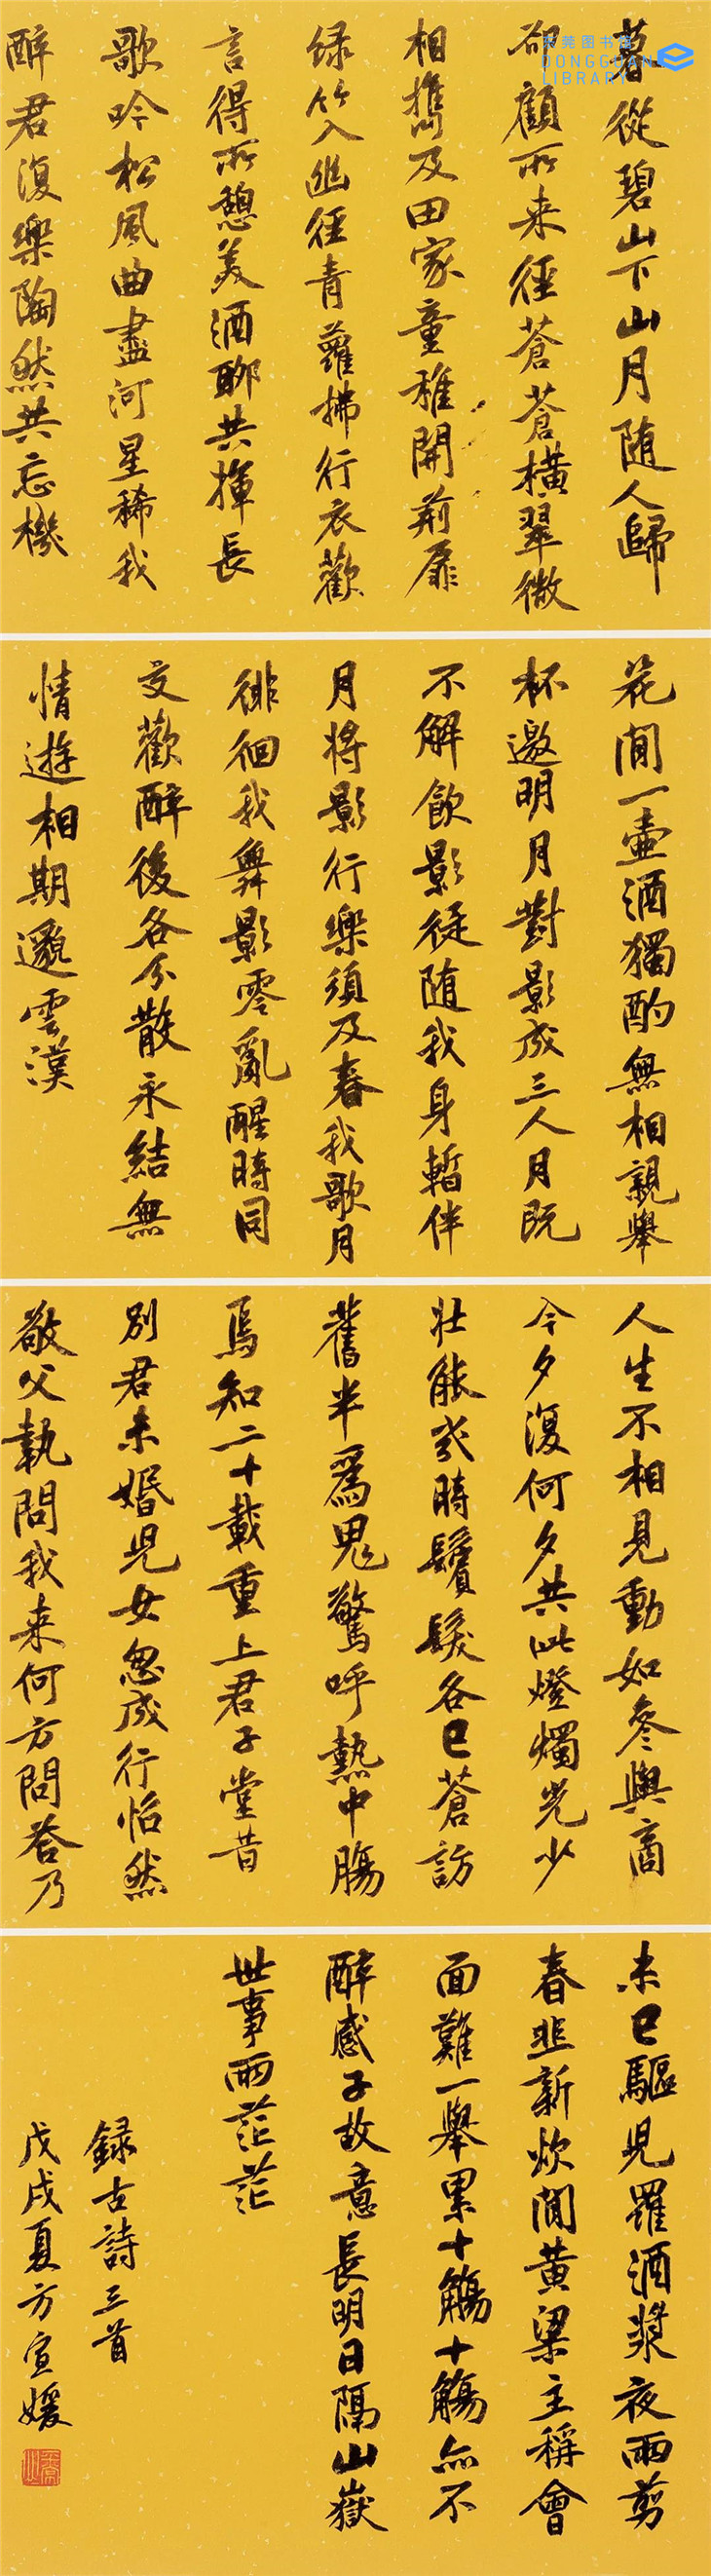 东莞图书馆
DONGGUAN
LIBRARY
暮從碧山下山月随人歸
卻顧所来徑蒼蒼橫翠微
相攜及田家童稚開荊扉
绿竹入幽徑青蘿拂行衣歡
言得所憩美酒聊共揮長
歌吟松風曲盡河星稀我
醉君復樂陶然共忘機
花間一壷酒獨酌無相親舉
杯邀明月對影成三人月既
不解飲影徒随我身暫伴
月將影行樂須及春我歌月
徘徊我舞影零亂醒時同
交歡醉後各分散永結無
情遊相期邈雲漢
人生不相見動如參與商
今夕復何夕共此燈燭光少
壯能幾時鬢髮各已蒼訪
舊半爲鬼驚呼熱中腸
焉知二十載重上君子堂昔
別君未婚児女忽成行怡然
敬父執問我来何方問答乃
未已驅児羅酒漿夜雨剪
春韭新炊間黄粱主稱會
面難一舉累十觴十觴亦不
醉感子故意長明日隔山嶽
世事兩茫茫
録古詩三首
戊戌夏方宣媛